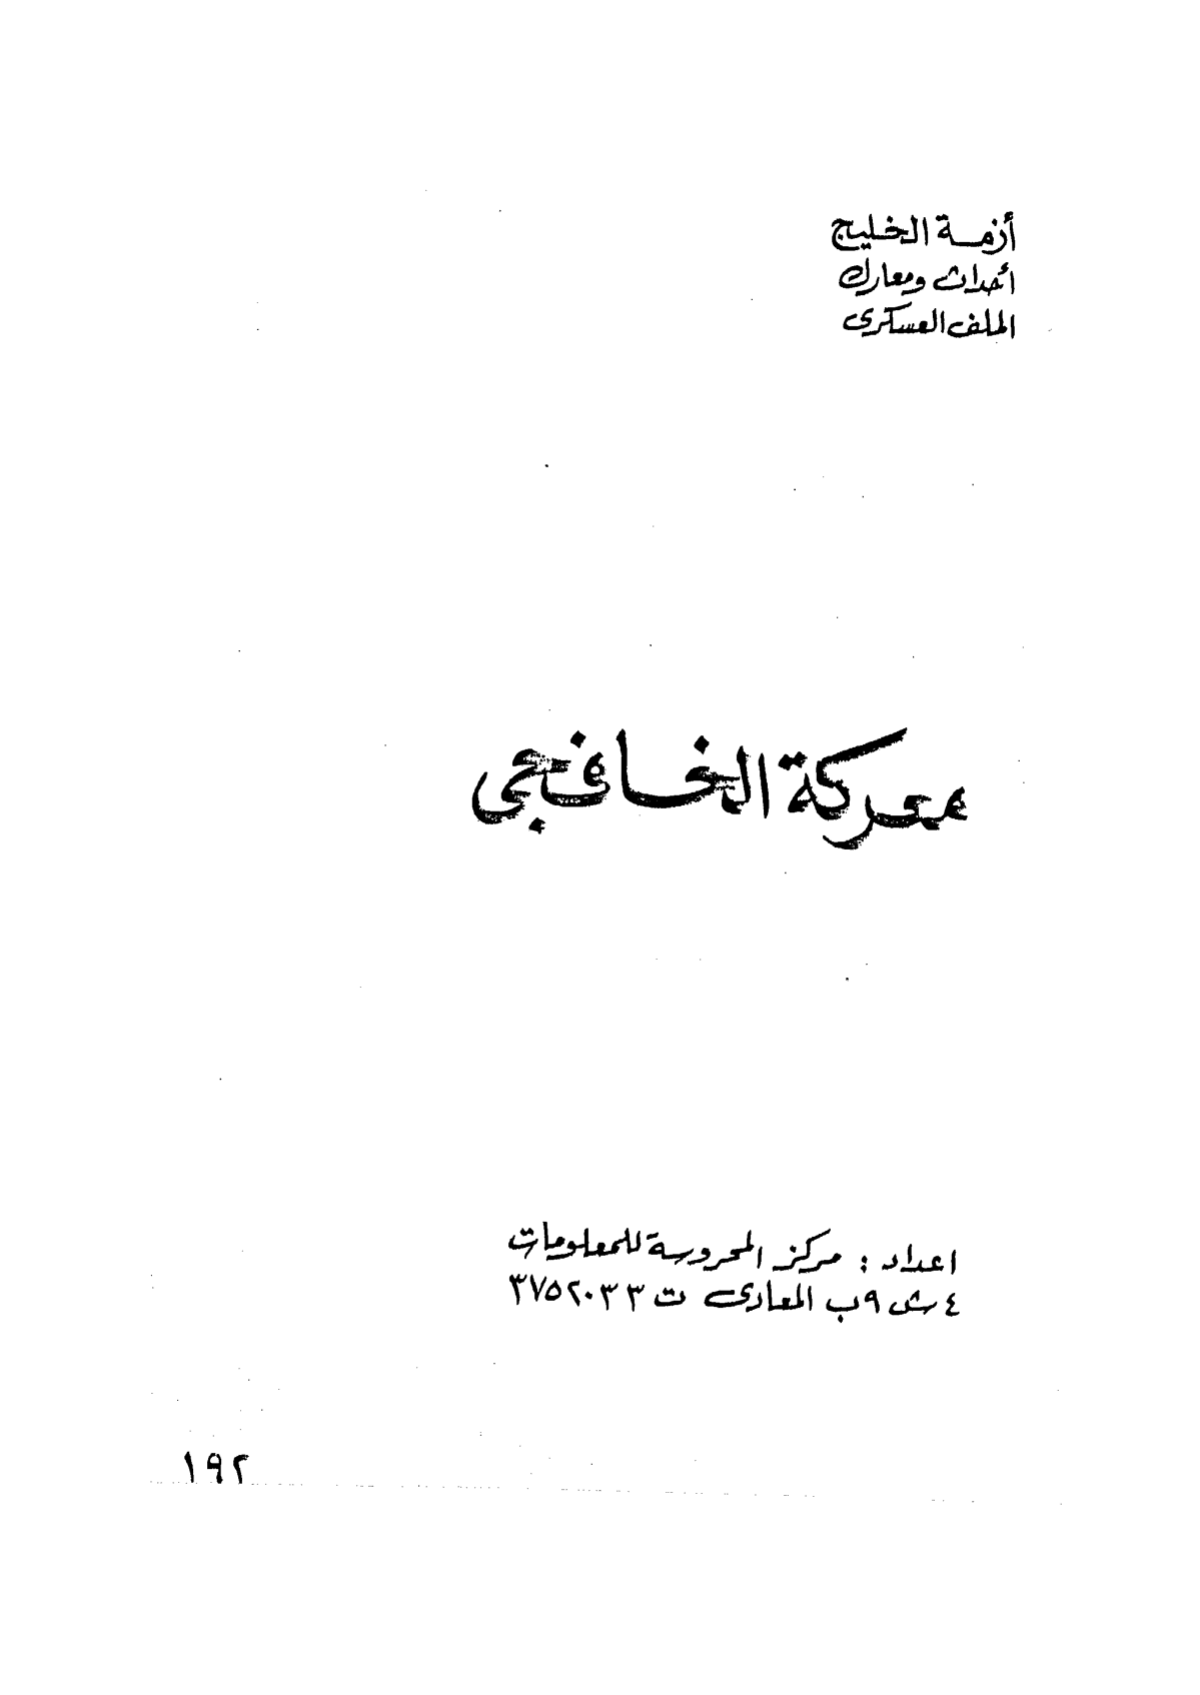 أزمة الخليج
أحداث ومعارك
الملف العسكرى
معركة الخافجى
اعداد : مركز المحروسة للمعلومات
٤ ش ٩ب المعادى ت ٣٧٥٢٠٣٣
١٩٢